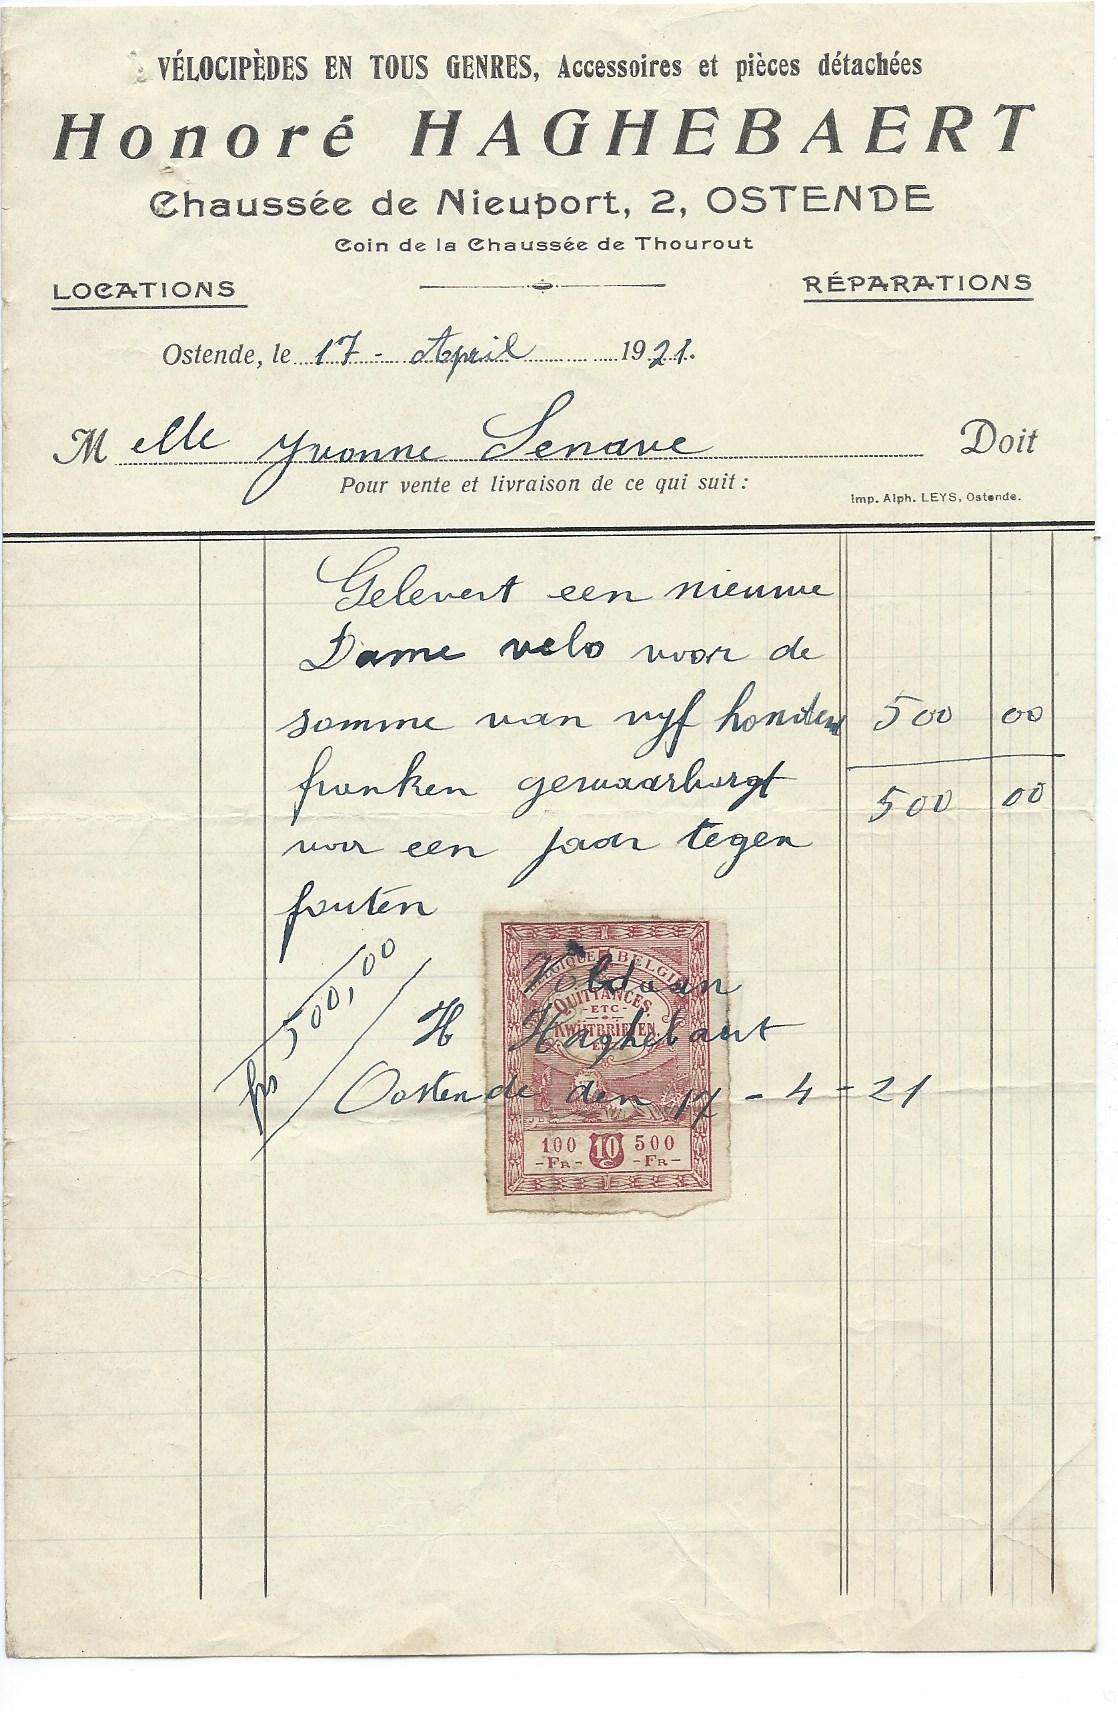 VÉLOCIPÈDES EN TOUS GENRES, Accessoires et pièces détachées
Honoré HAGHEBAERT
Chaussée de Nieuport, 2, OSTENDE
Coin de la Chaussée de Thourout
LOCATIONS
RÉPARATIONS
Ostende, le 17 - April 1921.
Melle Yvonne Senave Doit
Pour vente et livraison de ce qui suit :
Imp. Alph. LEYS, Ostende.
Gelevert een nieuwe
Dame velo voor de
somme van vyf honderd 500 00
franken gewaarborgt 500 00
voor een jaar tegen
fouten
frs 500,00
BELGIQUE BELGIË
Voldaan
QUITTANCES
ETC
KWIJTBRIEVEN
H Haghebaert
Oostende den 17 - 4 - 21
100 10 500
-FR- C -FR-